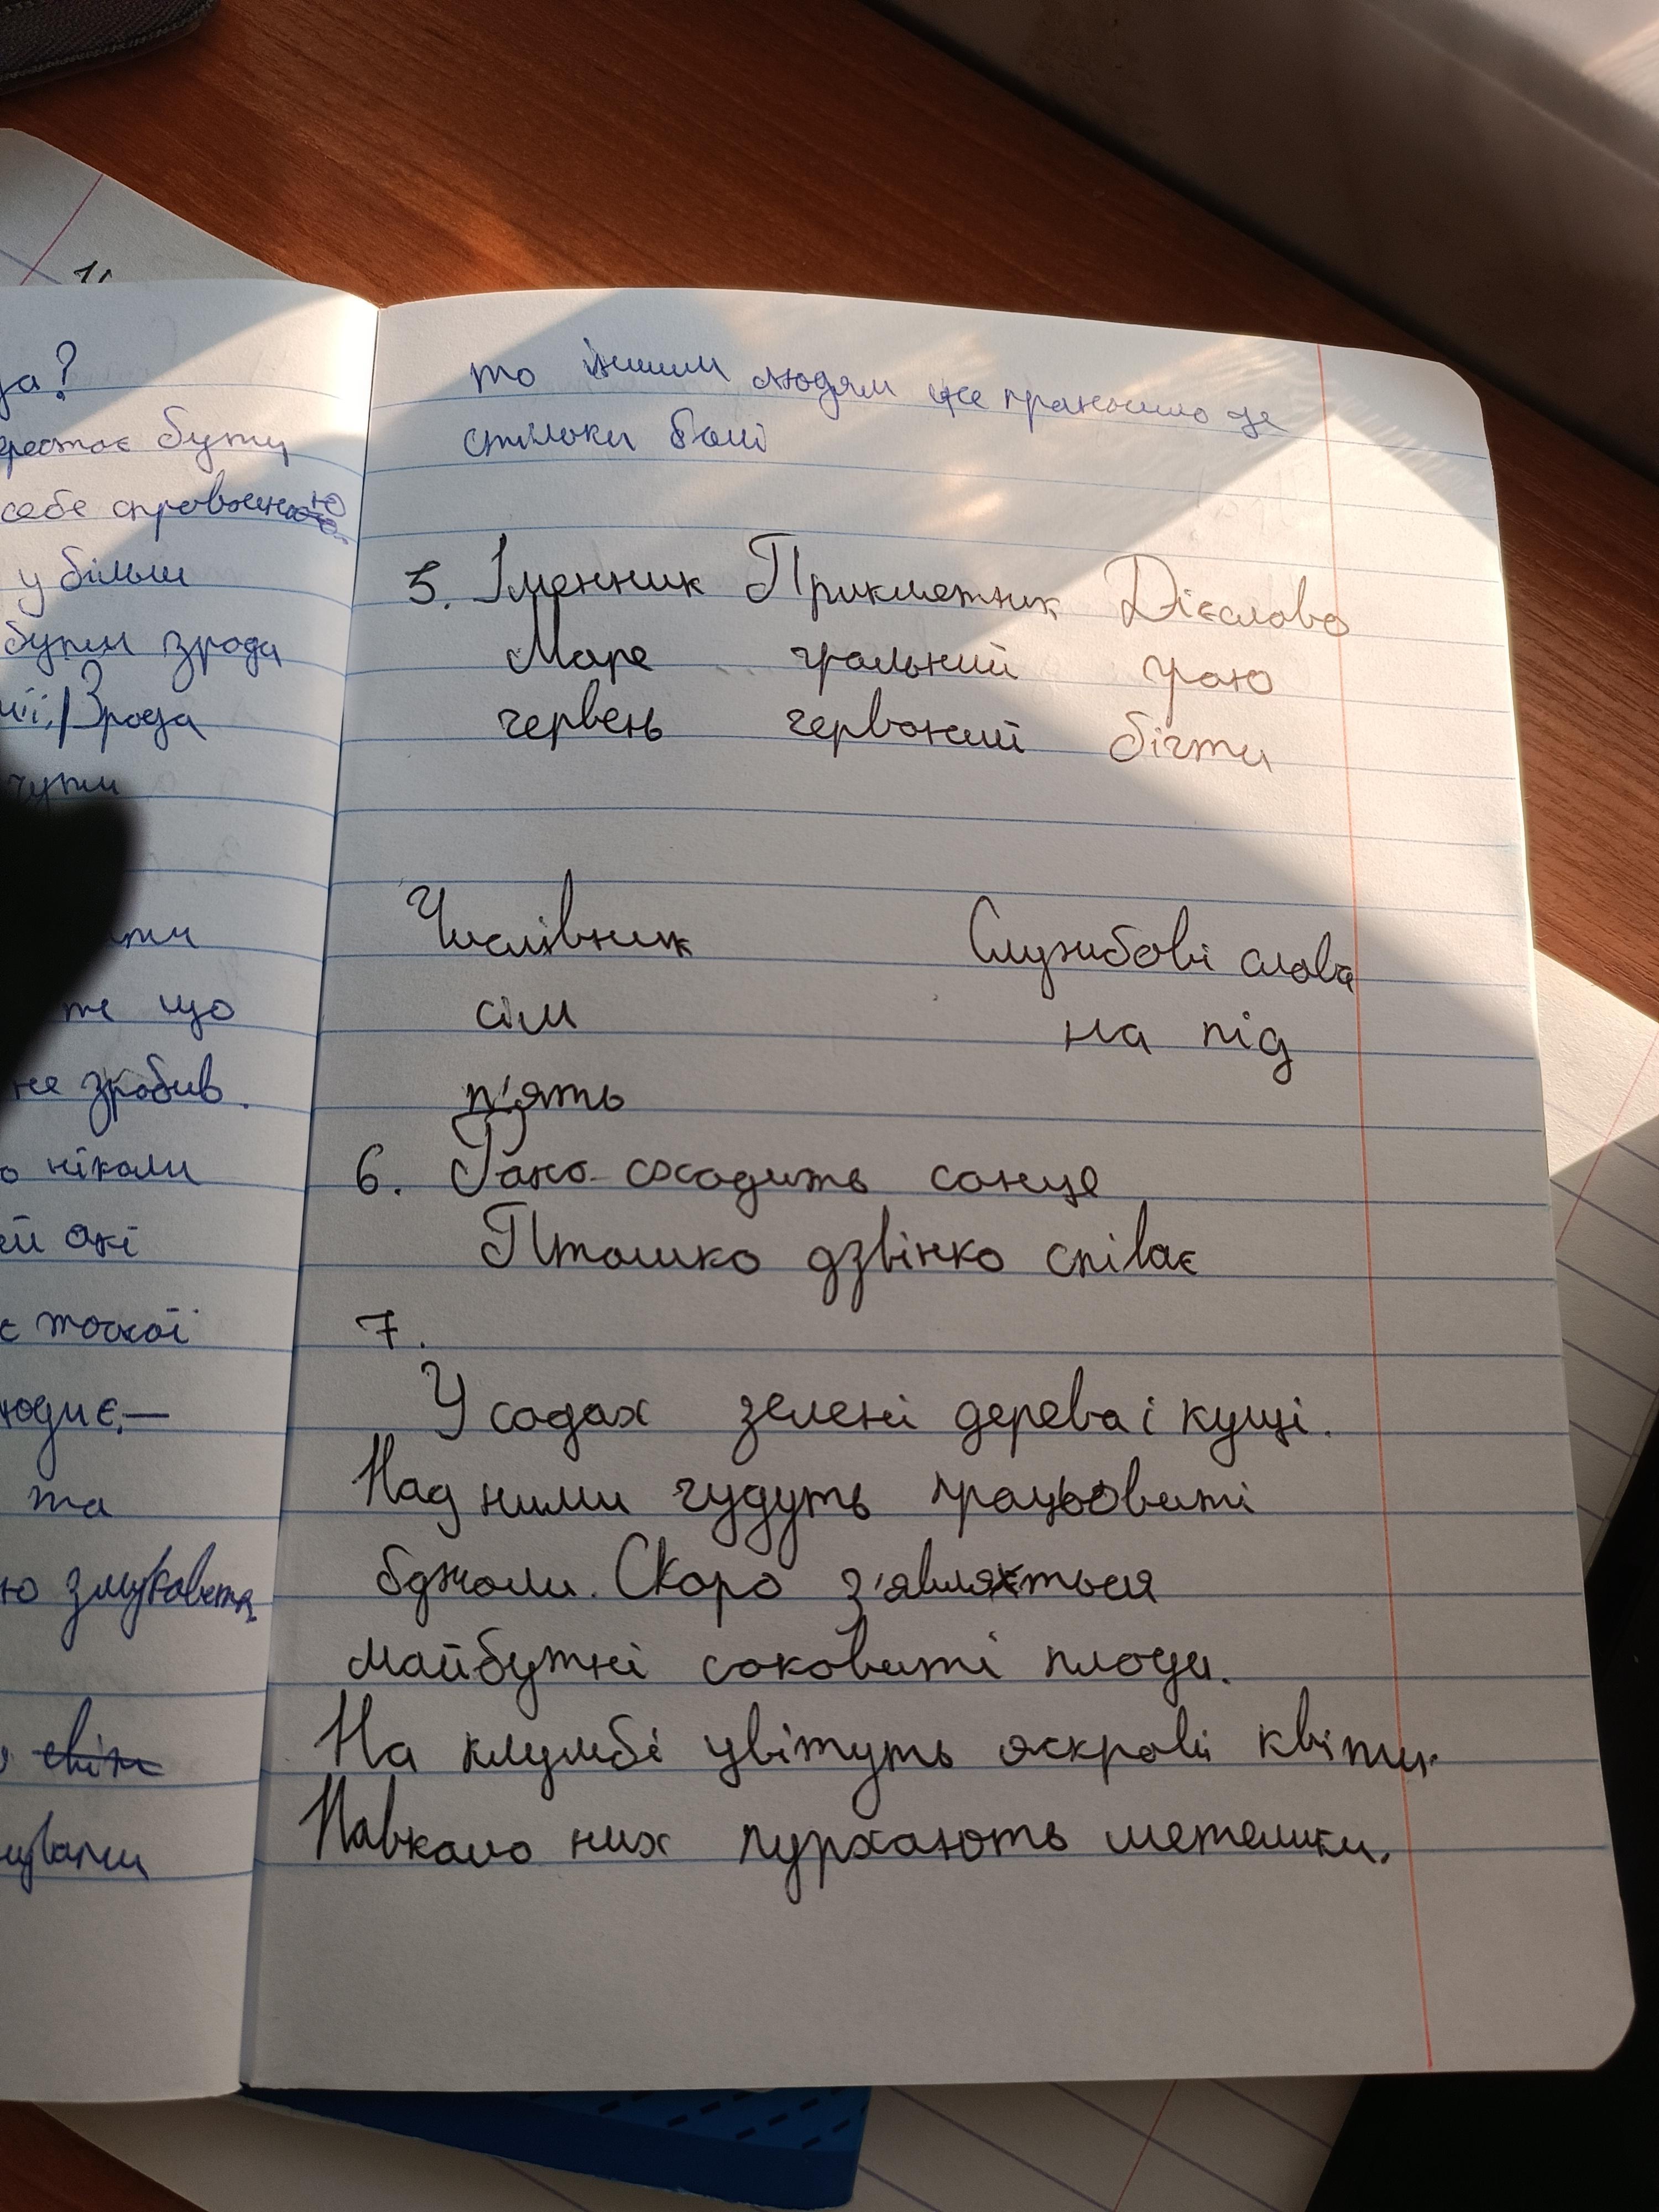 да?
бути
себе
у більш
бути зрода
Зрода
чути
що
не зробив.
ніколи
які
є
та
то іншим людям це
стільки болі
5. Іменник Прикметник Дієслово
Море гральний граю
червень червоний бігти
Числівник Службові слова
сім на під
п'ять
6. Рано сходить сонце
Пташко дзвінко співає
7.
У содах зелені дерева і кущі.
Над ними гудуть працьовиті
бджоли. Скоро з'являться
майбутні соковиті плоди.
На клумбі цвітуть яскраві квіти.
Навколо них пурхають метелики.